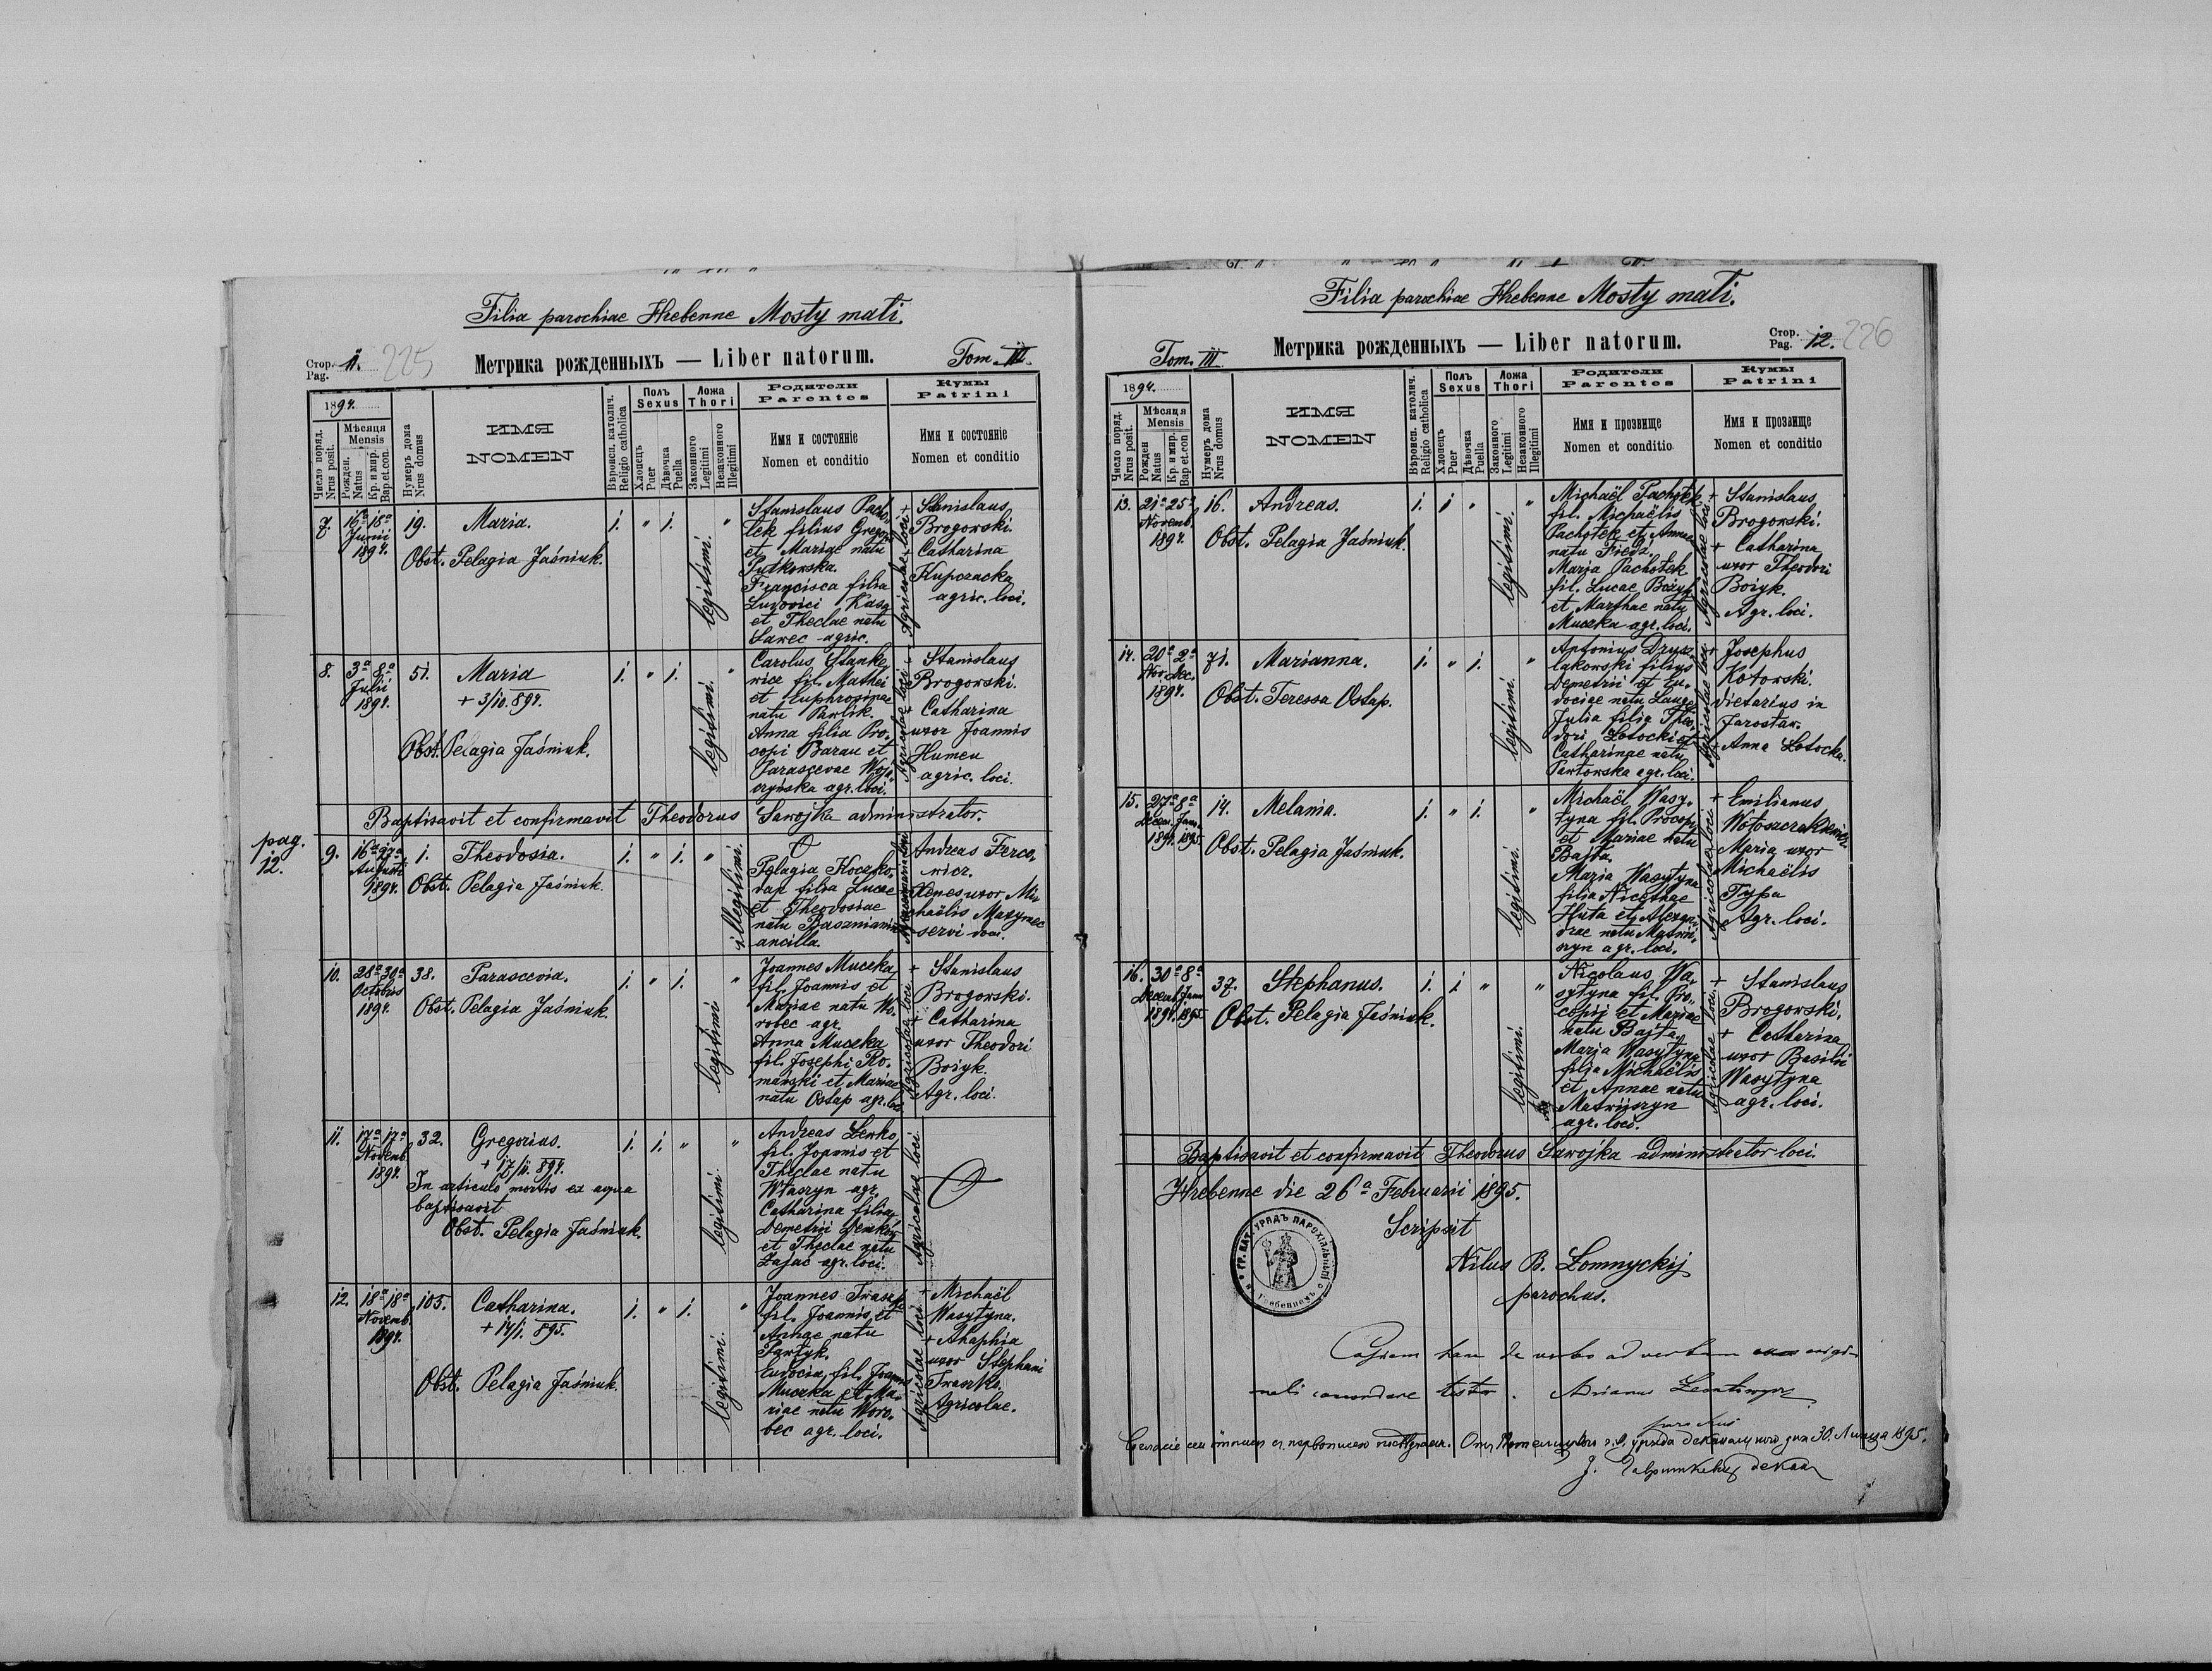 Filia parochiae Hrebenne Mosty mali.
Стор. Pag. 11. 225
Метрика рожденныхъ — Liber natorum.
Tom. III.
1894.
Число поряд. Nrus posit.
Мѣсяця Mensis
Рожден. Natus
Кр. и мир. Bap.et.con.
Нумеръ дома Nrus domus
ИМЯ NOMEN
Вѣроисп. католич. Religio catholica
Полъ Sexus
Хлопецъ Puer
Дѣвочка Puella
Ложа Thori
Законного Legitimi
Незаконного Illegitimi
Родители Parentes
Имя и состояніе Nomen et conditio
Кумы Patrini
Имя и состояніе Nomen et conditio
7. 16a 18a Junii 1894. 19. Maria. 1. " 1. legitimi. "
Obst. Pelagia Jaśniuk.
Stanislaus Pacho-
łek filius Gregorii
et Mariae natu
Putkowska.
Francisca filia
Ludovici Kasa
et Theclae natu
Sawec agric.
Agricolae loci
+ Stanislaus
Brogowski.
Catharina
Kupczacka
agric. loci.
8. 3a 8a Julii 1894. 51. Maria 1. " 1. legitimi. "
+ 3/10. 894.
Obst. Pelagia Jaśniuk.
Carolus Stanke-
wicz fil. Mathei
et Euphrosinae
natu Pawlik.
Anna filia Pro-
copi Baran et
Parascevae Woj-
agr. loci.
Agricolae loci
Stanislaus
Brogowski.
+ Catharina
uxor Joannis
Humen
agric. loci.
Baptisavit et confirmavit Theodorus Sawojka administrator.
pag.
12.
9. 16a 27a Augusti 1894. 1. Theodosia. 1. " 1. " illegitimi.
Obst. Pelagia Jaśniuk.
O
Pelagia Koczko-
dan filia Lucae
et Theodosiae
natu Basznianin
ancilla.
Andreas Ferco-
wicz.
Xenes uxor Mi-
chaëlis Mazymec
servi loci.
10. 28a 30a Octobris 1894. 38. Parascevia. 1. " 1. legitimi "
Obst. Pelagia Jaśniuk.
Joannes Muczka
fil. Joannis et
Mariae natu Wo-
robec agr.
Anna Muczka
fil. Josephi Ro-
mański et Mariae
natu Ostap agr. loci
Agricolae loci
+ Stanislaus
Brogowski.
+ Catharina
uxor Theodori
Boiyk.
Agr. loci.
11. 17a 17a Novemb. 1894. 32. Gregorius. 1. 1. " legitimi. "
+ 17/11. 894.
In articulo mortis ex aqua
baptisavit
Obst. Pelagia Jaśniuk.
Andreas Lewko
fil. Joannis et
Theclae natu
Właszyn agr.
Catharina filia
Demetrii Demków
et Theclae natu
Zajac agr. loci.
Agricolae loci
O
12. 18a 18a Novemb. 1894. 105. Catharina. 1. " 1. legitimi. "
+ 14/1. 895.
Obst. Pelagia Jaśniuk.
Joannes
fil. Joannis et
Annae natu
Pawlyk.
Eudocia fil. Joannis
Muczka et Ma-
riae natu Woro-
bec agr. loci.
Agricolae loci
+ Michaël
Wasylyna.
+ Ahaphia
uxor Stephani
Iwaszko.
Agricolae.
Filia parochiae Hrebenne Mosty mali.
Tom. III
Метрика рожденныхъ — Liber natorum.
Стор. Pag. 12. 226
1894.
Число поряд. Nrus posit.
Мѣсяця Mensis
Рожден Natus
Кр. и мир. Bap et.con
Нумеръ дома Nrus domus
ИМЯ NOMEN
Вѣроисп. католич. Religio catholica
Полъ Sexus
Хлопецъ Puer
Дѣвочка Puella
Ложа Thori
Законного Legitimi
Незаконного Illegitimi
Родители Parentes
Имя и прозвище Nomen et conditio
Кумы Patrini
Имя и прозвище Nomen et conditio
13. 21a 25a Novemb. 1894. 16. Andreas. 1. 1 " legitimi. "
Obst. Pelagia Jaśniuk.
Michaël Pachołek
fil. Michaëlis
Pachołek et Annae
natu Fiedz.
Maria Pachołek
fil. Lucae Bożyk
et Marthae natu
Muczka agr. loci.
Agricolae loci
+ Stanislaus
Brogowski.
+ Catharina
uxor Theodori
Boiyk.
Agr. loci.
14. 20a 2a Nov. Dec. 1894. 71. Marianna. 1. " 1. legitimi. "
Obst. Teressa Ostap.
Antonius Drusz-
lakowski filius
Demetrii et Eu-
dociae natu
Julia filia Theo-
dori Łotocki et
Catharinae natu
Pawłowska agr. loci.
Agricolae loci
+ Josephus
Kotowski.
dietarius in
Jarosław.
+ Anna Łotocka.
15. 27a 8a Decem. Jan. 1894. 1895. 14. Melania. 1. " 1. legitimi. "
Obst. Pelagia Jaśniuk.
Michaël Wasy-
lyna fil. Procopi
et Mariae natu
Bajta.
Maria Wasylyna
filia Nicethae
Huta et Alexan-
drae natu Matwij-
szyn agr. loci.
Agricolae loci
+ Emilianus
Maria uxor
Michaëlis
Typa
Agr. loci.
16. 30a 8a Decemb. Jann 1894. 1895 37. Stephanus. 1. 1 " legitimi. "
Obst. Pelagia Jaśniuk.
Nicolaus Wa-
sylyna fil. Pro-
copii et Mariae
natu Bajta.
Maria Wasylyna
filia Michaëlis
et Annae natu
Matwijszyn
agr. loci.
Agricolae loci
+ Stanislaus
Brogowski.
+ Catharina
uxor Basilii
Wasylyna
agr. loci.
Baptisavit et confirmavit Theodorus Sawojka administrator loci.
Hrebenne die 26a Februarii 1895.
Scripsit
Nilus B. Łomnyckij
parochus.
ГР. КАТ. УРЯДЪ ПАРОХІАЛЬНЫЙ
Copiam hanc de verbo ad verbum origi-
nali concordare testor. Adrianus
parochus
30. Липця 1895.
декан